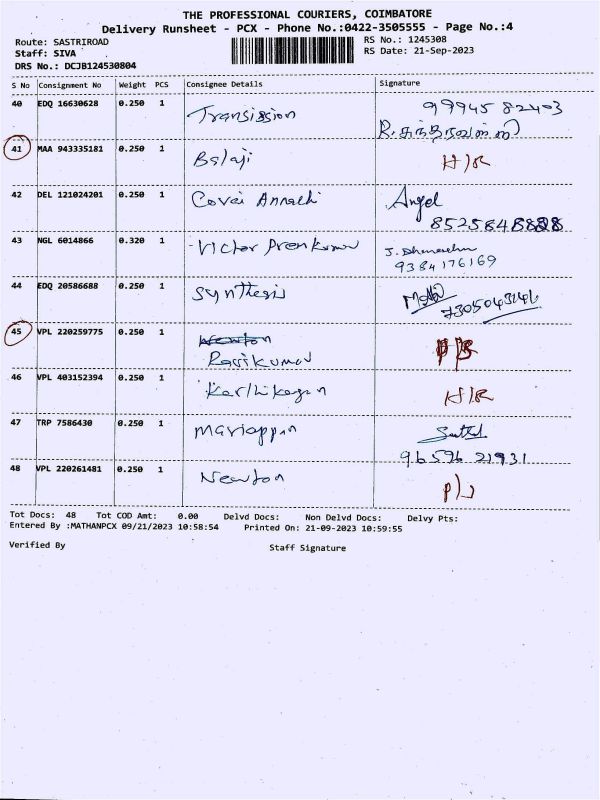 THE PROFESSIONAL COURIERS, COIMBATORE
Delivery Runsheet - PCX - Phone No.:0422-3505555 - Page No.:4
Route: SASTRIROAD RS No.: 1245308
Staff: SIVA RS Date: 21-Sep-2023
DRS No.: DCJB124530804
S No Consignment No Weight PCS Consignee Details Signature
40 EDQ 16630628 0.250 1 Transission 99945 82403
41 MAA 943335181 0.250 1 Balaji
42 DEL 121024201 0.250 1 Covai Angel
43 NGL 6014866 0.320 1 Victor Premkumar
9384176169
44 EDQ 20586688 0.250 1 Synthesis
45 VPL 220259775 0.250 1 Newton
Ravikumar
46 VPL 403152394 0.250 1 Karthikeyan
47 TRP 7586430 0.250 1 Mariappan
96596 21931
48 VPL 220261481 0.250 1 Newton
Tot Docs: 48 Tot COD Amt: 0.00 Delvd Docs: Non Delvd Docs: Delvy Pts:
Entered By :MATHANPCX 09/21/2023 10:58:54 Printed On: 21-09-2023 10:59:55
Verified By Staff Signature